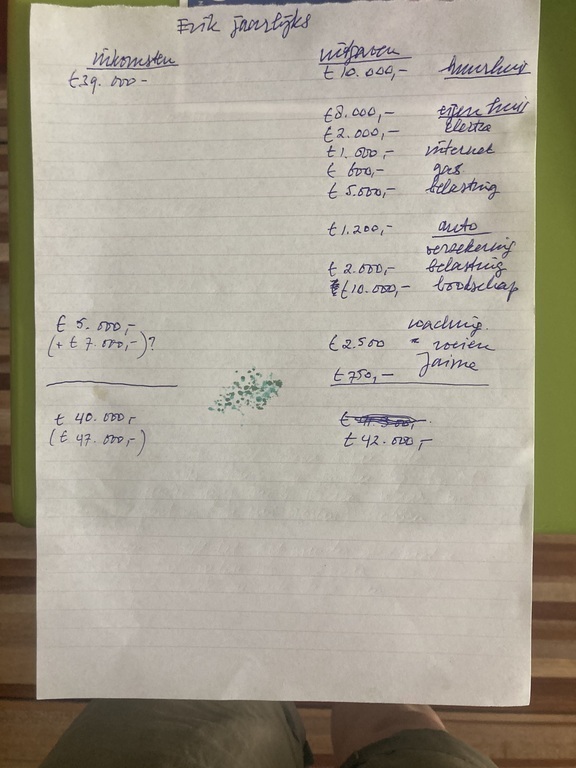 Erik jaarlijks
inkomsten uitgaven
€39.000- €10.000,- huurhuis
€8.000,- eigen huis
€2.000,- elektra
€1.000,- internet
€ 600,- gas
€5.000,- belasting
€1.200,- auto
verzekering
€2.000,- belasting
€10.000,- boodschap
€ 5.000,-
(+ €7.000,-)? €2.500
Jaime
€750,-
€ 40.000,-
(€ 47.000,-) €42.000,-